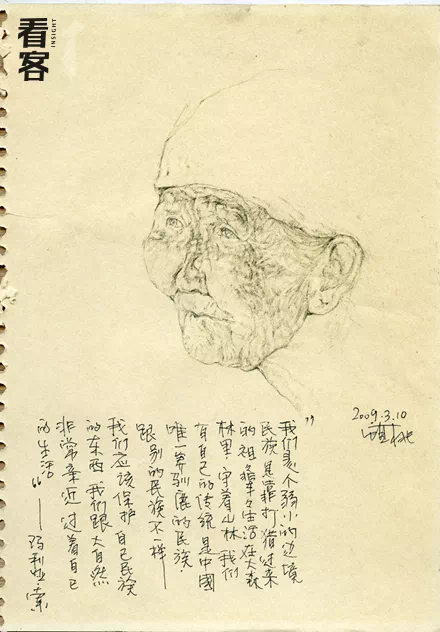 看客
INSIGHT
2009.3.10
”我们是个弱小的边境
民族是靠打猎过来
的祖辈生活在大森
林里,守着山林,我们
有自己的传统 是中國
唯一养驯鹿的民族.
跟别的民族不一样——
我们应该保护自己民族
的东西 我们跟大自然
非常亲近 过着自己
的生活“ ——玛利亚索